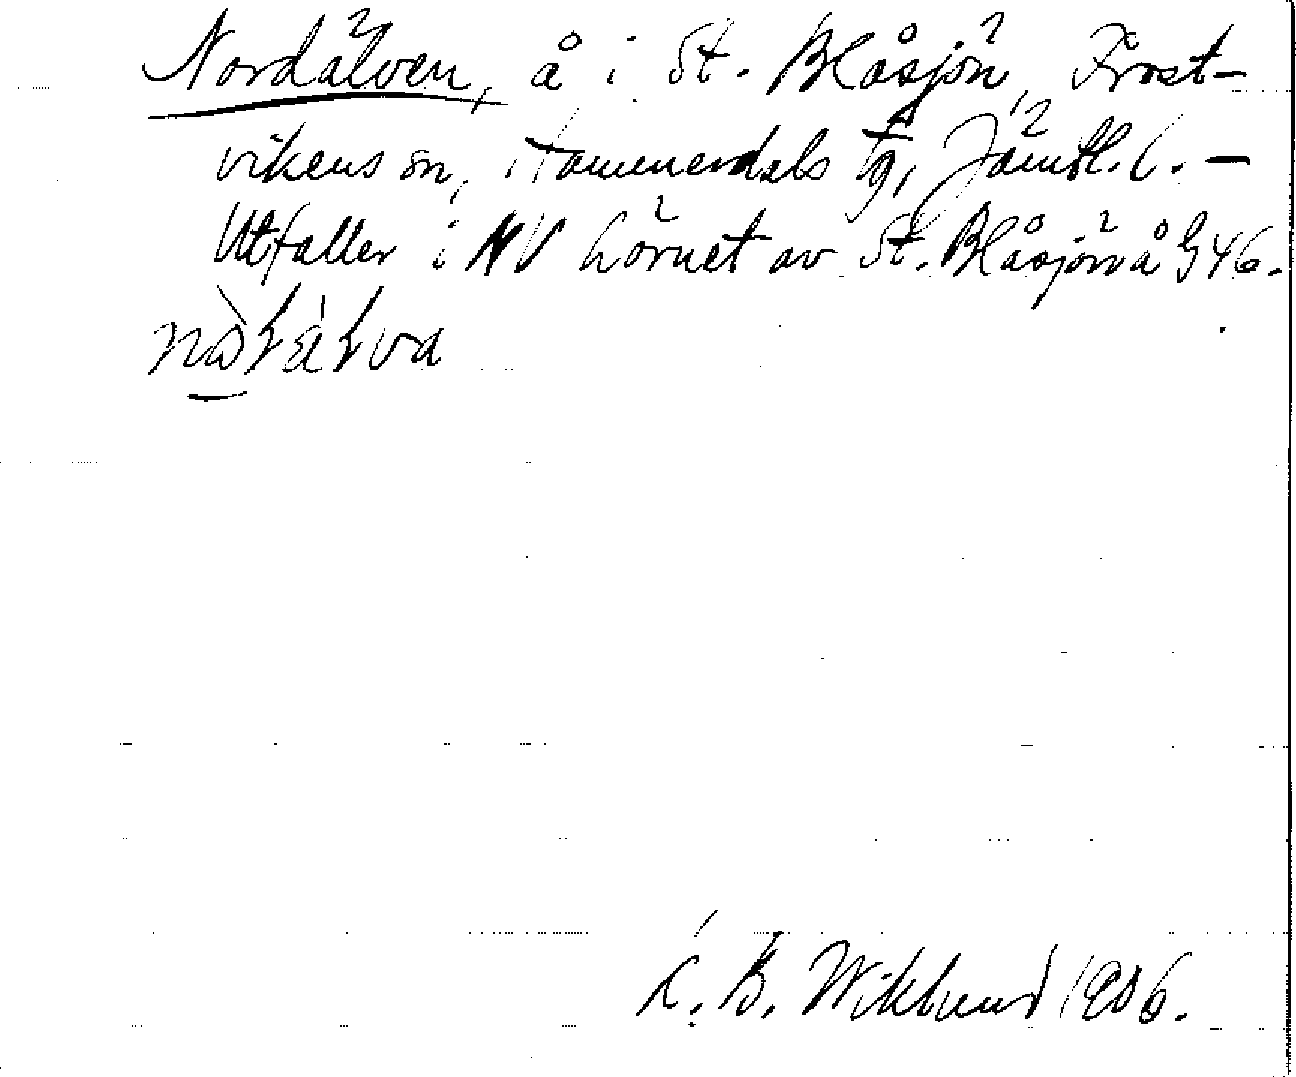 Nordälven, å i St. Blåsjön, Frost-
vikens sn, Hammerdals tg, Jämtl. l. —
Utfaller i NV hörnet av St. Blåsjön å G 46.
K. B. Wiklund 1906.